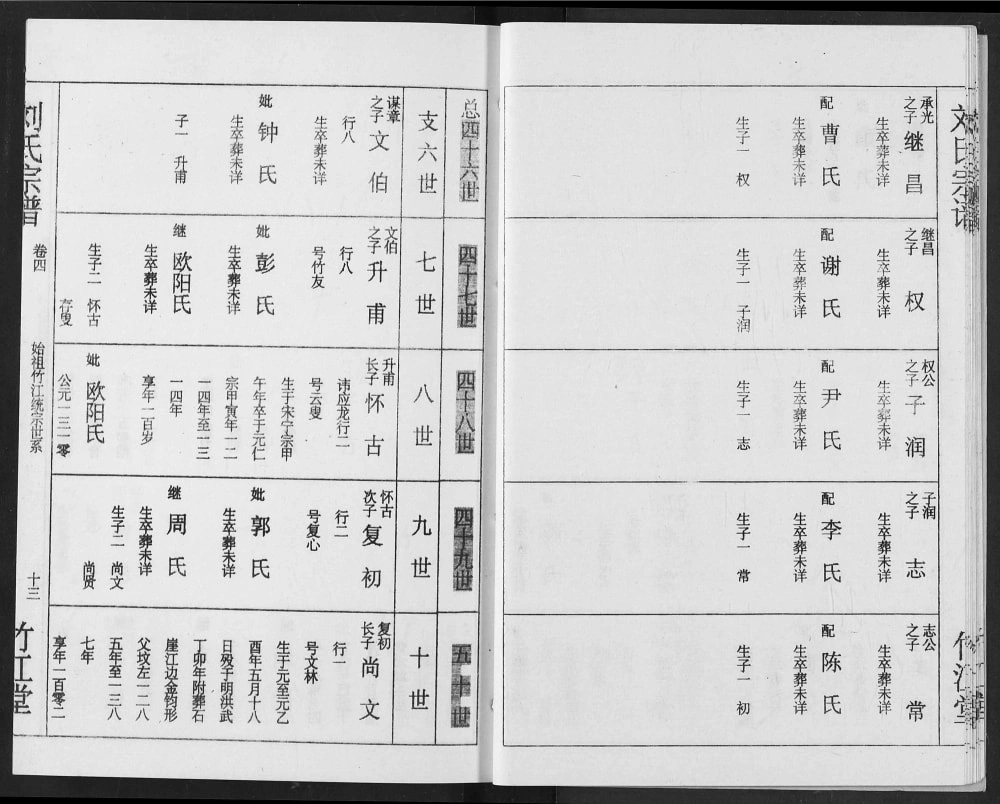 承光
之子
继昌
生卒葬未详
配
曹氏
生卒葬未详
生子一 权
继昌
之子
权
生卒葬未详
配
谢氏
生卒葬未详
生子一 子润
权公
之子
子润
生卒葬未详
配
尹氏
生卒葬未详
生子一 志
子润
之子
志
生卒葬未详
配
李氏
生卒葬未详
生子一 常
志公
之子
常
生卒葬未详
配
陈氏
生卒葬未详
生子一 初
总四十六世
支六世
谋章
之子
文伯
行八
生卒葬未详
妣
钟氏
生卒葬未详
子一 升甫
四十七世
七世
文伯
之子
升甫
行八
号竹友
妣
彭氏
生卒葬未详
继
欧阳氏
生卒葬未详
生子二 怀古
存叟
四十八世
八世
升甫
长子
怀古
讳应龙行二
号云叟
生于宋宁宗甲
午年卒于元仁
宗甲寅年一二
一四年至一三
一四年
享年一百岁
妣
欧阳氏
公元一三一零
四十九世
九世
怀古
次子
复初
行二
号复心
妣
郭氏
生卒葬未详
继
周氏
生卒葬未详
生子二 尚文
尚贤
五十世
十世
复初
长子
尚文
行一
号文林
生于元至元乙
酉年五月十八
日殁于明洪武
丁卯年附葬石
崖江边金钧形
父坟左一二八
五年至一三八
七年
享年一百零二
刘氏宗谱
卷四
始祖竹江统宗世系
十三
竹江堂